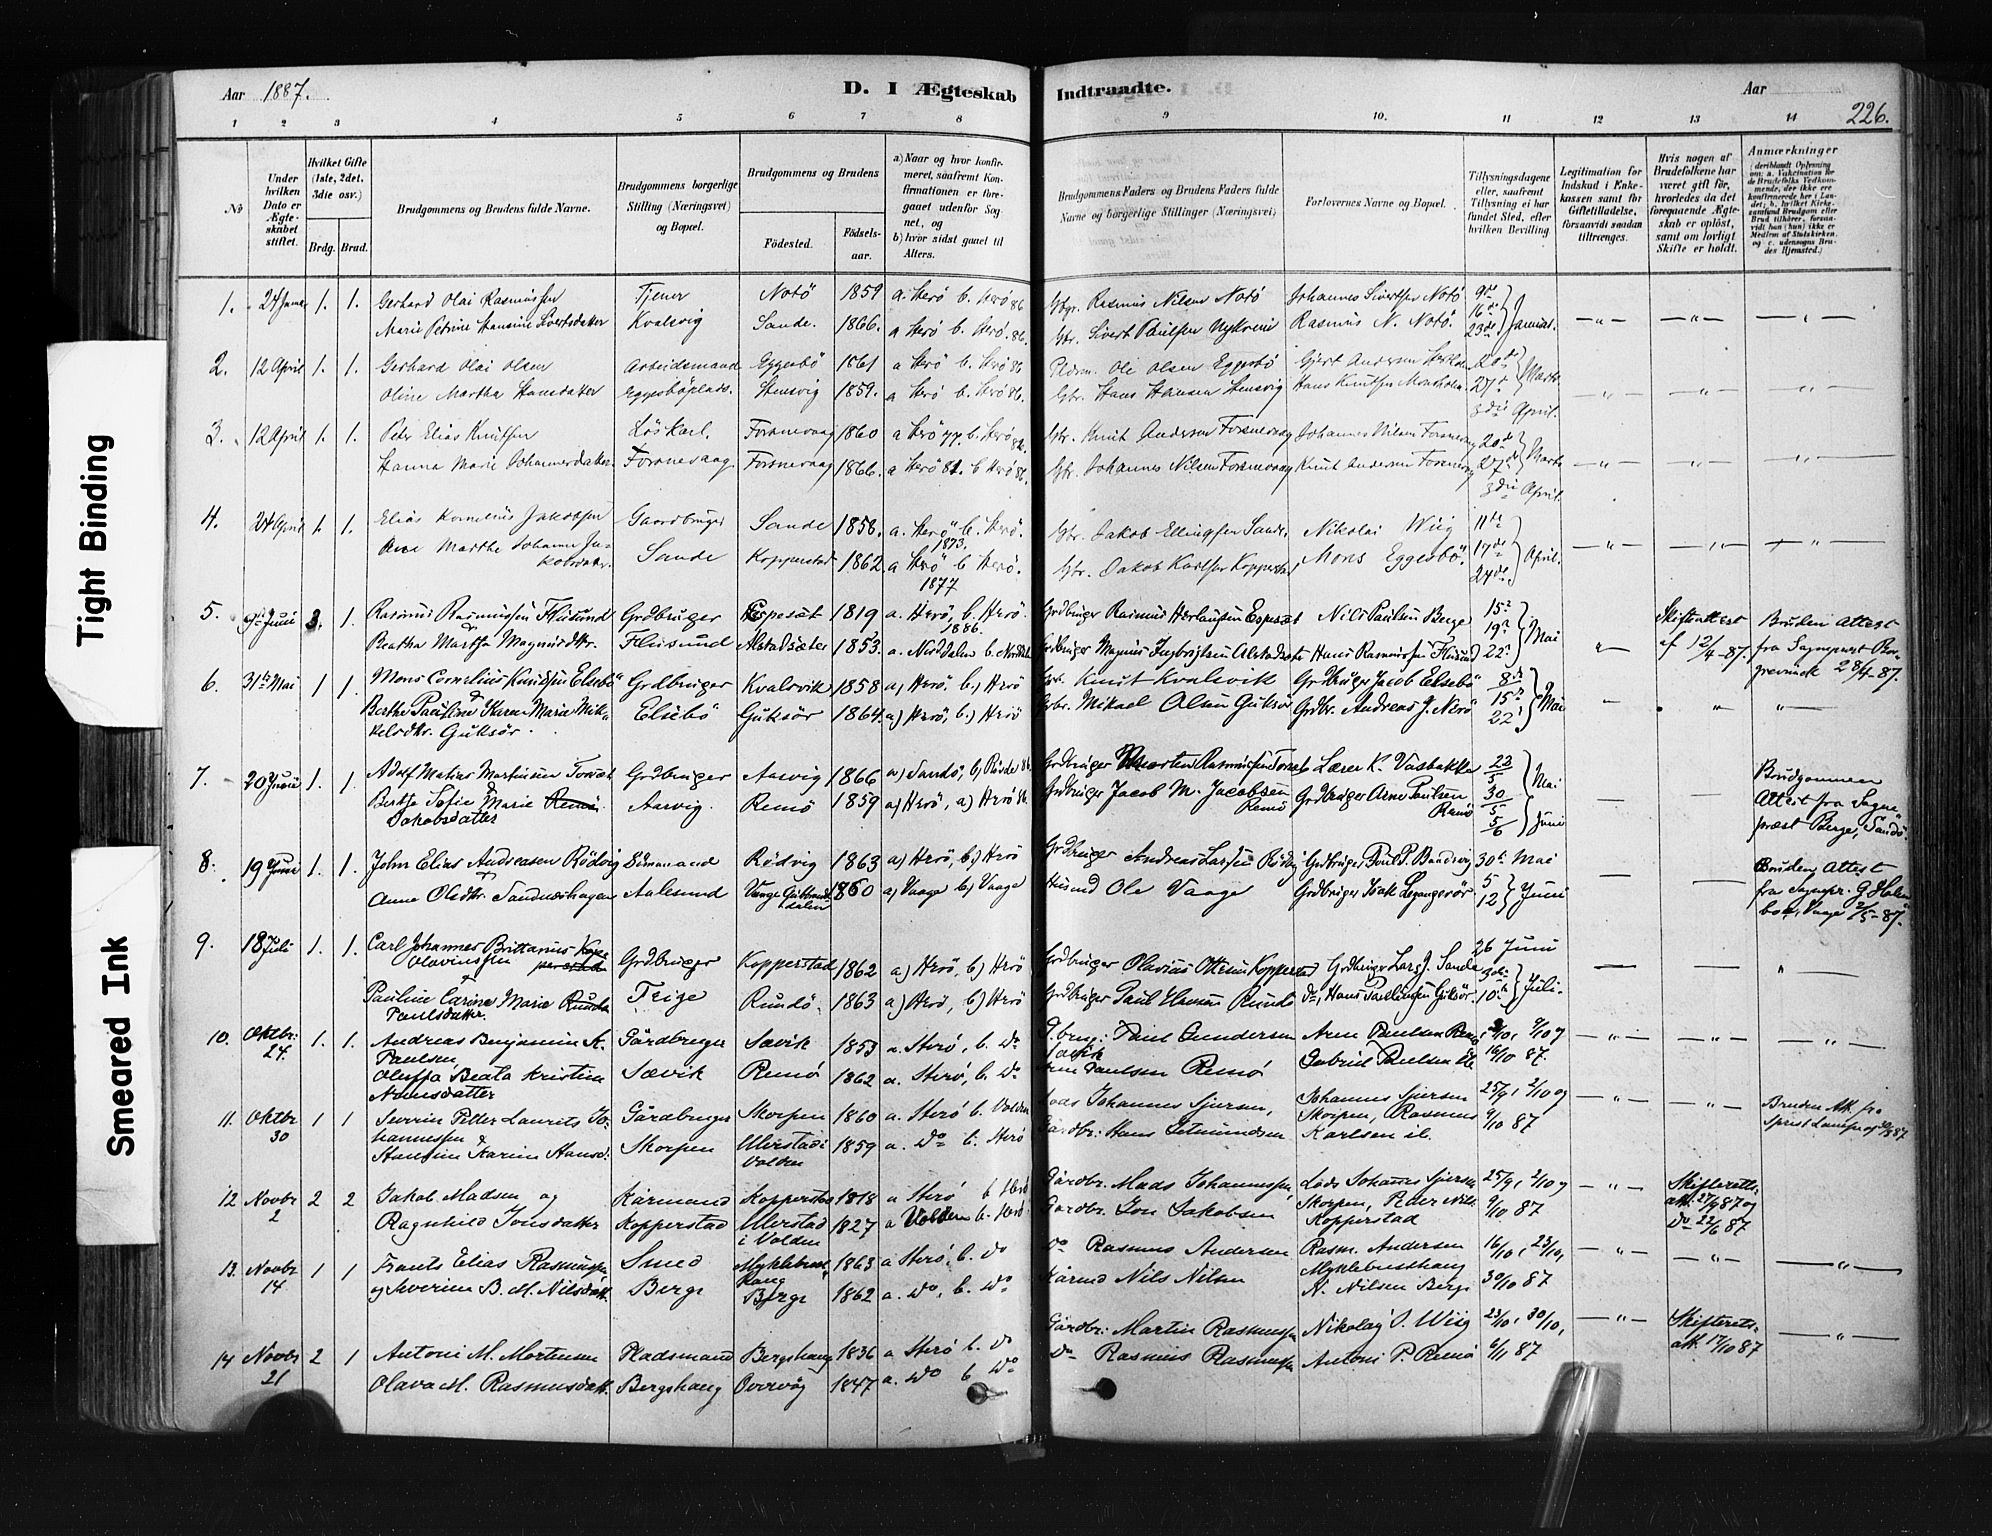 Aar 1887.
D. I Ægteskab Indtraadte.
Aar
226.
1 2 3 4 5 6 7 8 9 10. 11 12 13 14
No
Under hvilken Dato er Ægteskabet stiftet.
Hvilket Gifte (1ste, 2det. 3die osv.)
Brdg. Brud.
Brudgommens og Brudens fulde Navne.
Brudgommens borgerlige Stilling (Næringsvei) og Bopæl.
Brudgommens og Brudens
Fødested.
Fødselsaar.
a) Naar og hvor konfirmeret, saafremt Konfirmationen er foregaaet udenfor Sognet, og
b) hvor sidst gaaet til Alters.
Brudgommens Faders og Brudens Faders fulde Navne og borgerlige Stillinger (Næringsvei)
Forlovernes Navne og Bopæl.
Tillysningsdagene eller, saafremt Tillysning ei har fundet Sted, efter hvilken Bevilling.
Legitimation for Indskud i Enkekassen samt for Giftetilladelse, forsaavidt saadan tiltrænges.
Hvis nogen af Brudefolkene har været gift før, hvorledes da det foregaaende Ægteskab er opløst, samt om lovligt Skifte er holdt.
Anmærkninger
(deriblandt Oplysning om: a. Vakcination for de Brudefolks Vedkommende, der ikke ere konfirmerede her i Landet; b. hvilket Kirkesamfund Brudgom eller Brud tilhører, forsaavidt han (hun) ikke er Medlem af Statskirken, og c. udensogns Brudes Hjemsted.)
1. 24 Januar 1. 1. Gerhard Olai Rasmussen Tjener Notö 1859 a. Herö b. Herö 86 Gbr. Rasmus Nilsen Notö Johannes Sivertsen Notö 9de
Marie Petrine Hansine Sivertsdatter Kvalsvig Sande. 1866. a Herö b. Herö 86. Gbr. Sivert Paulsen Nykrem Rasmus N. Notö. 16de 23de Januar.
2. 12 April 1. 1. Gerhard Olai Olsen Arbeidsmand Eggesbö 1861 a Herö b. Herö 86 Ole Olsen Eggesbö Gjert Andersen 20de
Oline Martha Hansdatter Eggesböplads. Stensvig 1859. a Herö b. Herö 86. Gbr. Hans Hansen Stensvig Hans Knutsen 27de Marts 3die April.
3. 12 April 1. 1. Peter Elias Knutsen Löskarl. Fosnevaag 1860 a Herö 77. b. Herö 82. Gbr. Knut Andersen Fosnevaag Johannes Nilsen Fosnevaag 20de
Hanna Marie Johannesdatter Fosnevaag. Fosnevaag 1866. a Herö 81. b Herö 86. Gbr. Johannes Nilsen Fosnevaag Knut Andersen Fosnevaag 27de Marts 3die April.
4. 24 April 1. 1. Elias Kornelius Jakobsen Gaardbruger Sande 1858. a. Herö b. Herö. 1873. Gbr. Jakob Ellingsen Sande. Nikolai Wiig 11te
Ane Marthe Johanne Jakobsdatter. Sande Kopperstad 1862. a Herö b Herö. 1877 Gbr. Jakob Karlsen Kopperstad Mons Eggesbö. 17de 24de April.
5. 9de Juni 3. 1. Rasmus Rasmussen Flusund Grdbruger Espesæt 1819 a. Herö, b. Herö. 1886. Grdbruger Rasmus Herlaugsen Espesæt Nils Paulsen Berge 15de
Beathe Martha Magnusdtr. Flusund Alstadsæter 1853. a. Norddalen b. Norddalen Grdbruger Magnus Ingbrigtsen Alstadsæter Hans Rasmussen Flusund 19de 22de Mai
Skifteattest af 12/4-87. Brudens Attest fra Sognepræst 28/4-87.
6. 31te Mai 1 1. Mons Cornelius Knudsen Elsebö Grdbruger Kvalsvik 1858 a) Herö, b) Herö Grb. Knut Kvalsvik Grdbruger Jacob Elsebö 8de
Berthe Pauline Karen Marie Mikkelsdtr. Gurskör. Elsebö Gurskör 1864. a) Herö, b) Herö Grbr. Mikael Olsen Gurskör Grdbr. Andreas J. Nerö 15de 22 Mai
7. 20 Juni 1. 1. Adolf Matias Martinsen Grdbruger Aarvig 1866 a) Sandö, b) 86. Grdbruger Morten Rasmussen Lærer K. Vasbakke 22/5
Berthe Sofie Marie Remö Jakobsdatter Aarvig. Remö 1859 a) Herö, a) Herö 86. Grdbruger Jacob M. Jacobsen Remö Grdbruger Arne Paulsen Remö 30/5 Mai 5/6 Juni
Brudgommens Attest fra Sognepræst Berge, Sandö.
8. 19 Juni 1. 1. John Elias Andreasen Rödvig Sömand Rödvig 1863 a) Herö, b) Herö Grdbruger Andreas Larsen Rödvig Grdbruger Poul P. 30te Mai
Anna Olsdtr. Sandneshagen Aalesund Vaage Gudbrandsdalen 1860 a) Vaage b) Vaage Husmd Ole Vaage Grdbruger Isak Leganger 5 12 Juni
Brudens Attest fra Sognepr. G. Vaage 2/5-87.
9. 18 Juli 1. 1. Carl Johannes Brittanius Olaviussen Grdbruger Kopperstad 1862 a) Herö, b) Herö Grdbruger Olavius Ottesen Kopperstad Grdbruger Lars J. Sande 26 Juni
Pauline Carine Marie Runde Paulsdatter. Teige Rundö. 1863 a) Herö, b) Herö Grdbruger Paul Hansen Rundö do, Hans Paulinsen Gurskör. 3die 10de Juli.
10. Oktbr: 24. 1. 1. Andreas Benjamin A. Paulsen, Gårdbruger Sævik 1853 a. Herö, b. Do G.brug: Paul Gundersen Sævik Arne Paulsen Remö 2/10, 9/10 og
Oluffa Beata Kristine Arnesdatter Sævik Remö 1862 a. Herö, b. Do Arne Paulsen Remö Gabriel Paulsen 16/10 87.
11. Oktbr 30 1 1 Severin Petter Laurits Johannessen & Gårdbruger Skorpen 1860 a. Herö b. Volden Lods Johannes Sjursen, Johannes Sjursen Skorpen, Rasmus 25/9, 2/10 og
Hansine Karine Hansd: Skorpen Ulvestad i Volden 1859 a. Do b. Herö Gårdbr: Hans Setmundsen Karlsen il. 9/10 87
Brudens Att. fra
12 Novbr 2 2 2 Jakob Madsen og Kårmand Kopperstad 1818 a Herö b Herö Gårdbr. Mads Johannessen Lods Johannes Sjursen 25/9, 2/10 og
Ragnhild Jonsdatter Kopperstad Ulvestad i Volden 1827 a Volden b. Herö Gårdbr. Jon Jakobsen Skorpen, Peder Nils: Kopperstad 9/10 87
Skifteretts- att. 27/9 87 og Do 22/6 87
13. Novbr 14 1 1 Frants Elias Rasmussen Smed Myklebusthaug 1863 a Herö, b. Do Do Rasmus Andersen Rasm. Andersen Myklebusthaug 16/10, 23/10,
og Severine B. M. Nilsdatt. Berge Berge 1862 a. Do, b. Do Kårmd Nils Nilsen N. Nilsen Berge 30/10 87
14 Novbr 21 2 1 Antoni M. Mortensen Pladsmand Bergshaug 1836 a Herö b. Do Gårdbr: Martin Rasmussen Nikolaj S. Wiig 23/10, 30/10,
Olava M. Rasmusdatt. Bergshaug Overvåg 1847 a. Do b Do Do Rasmus Rasmussen Antoni P. Remö 6/11 87
Skifteretts- att. 17/10 87
Tight Binding
Smeared Ink